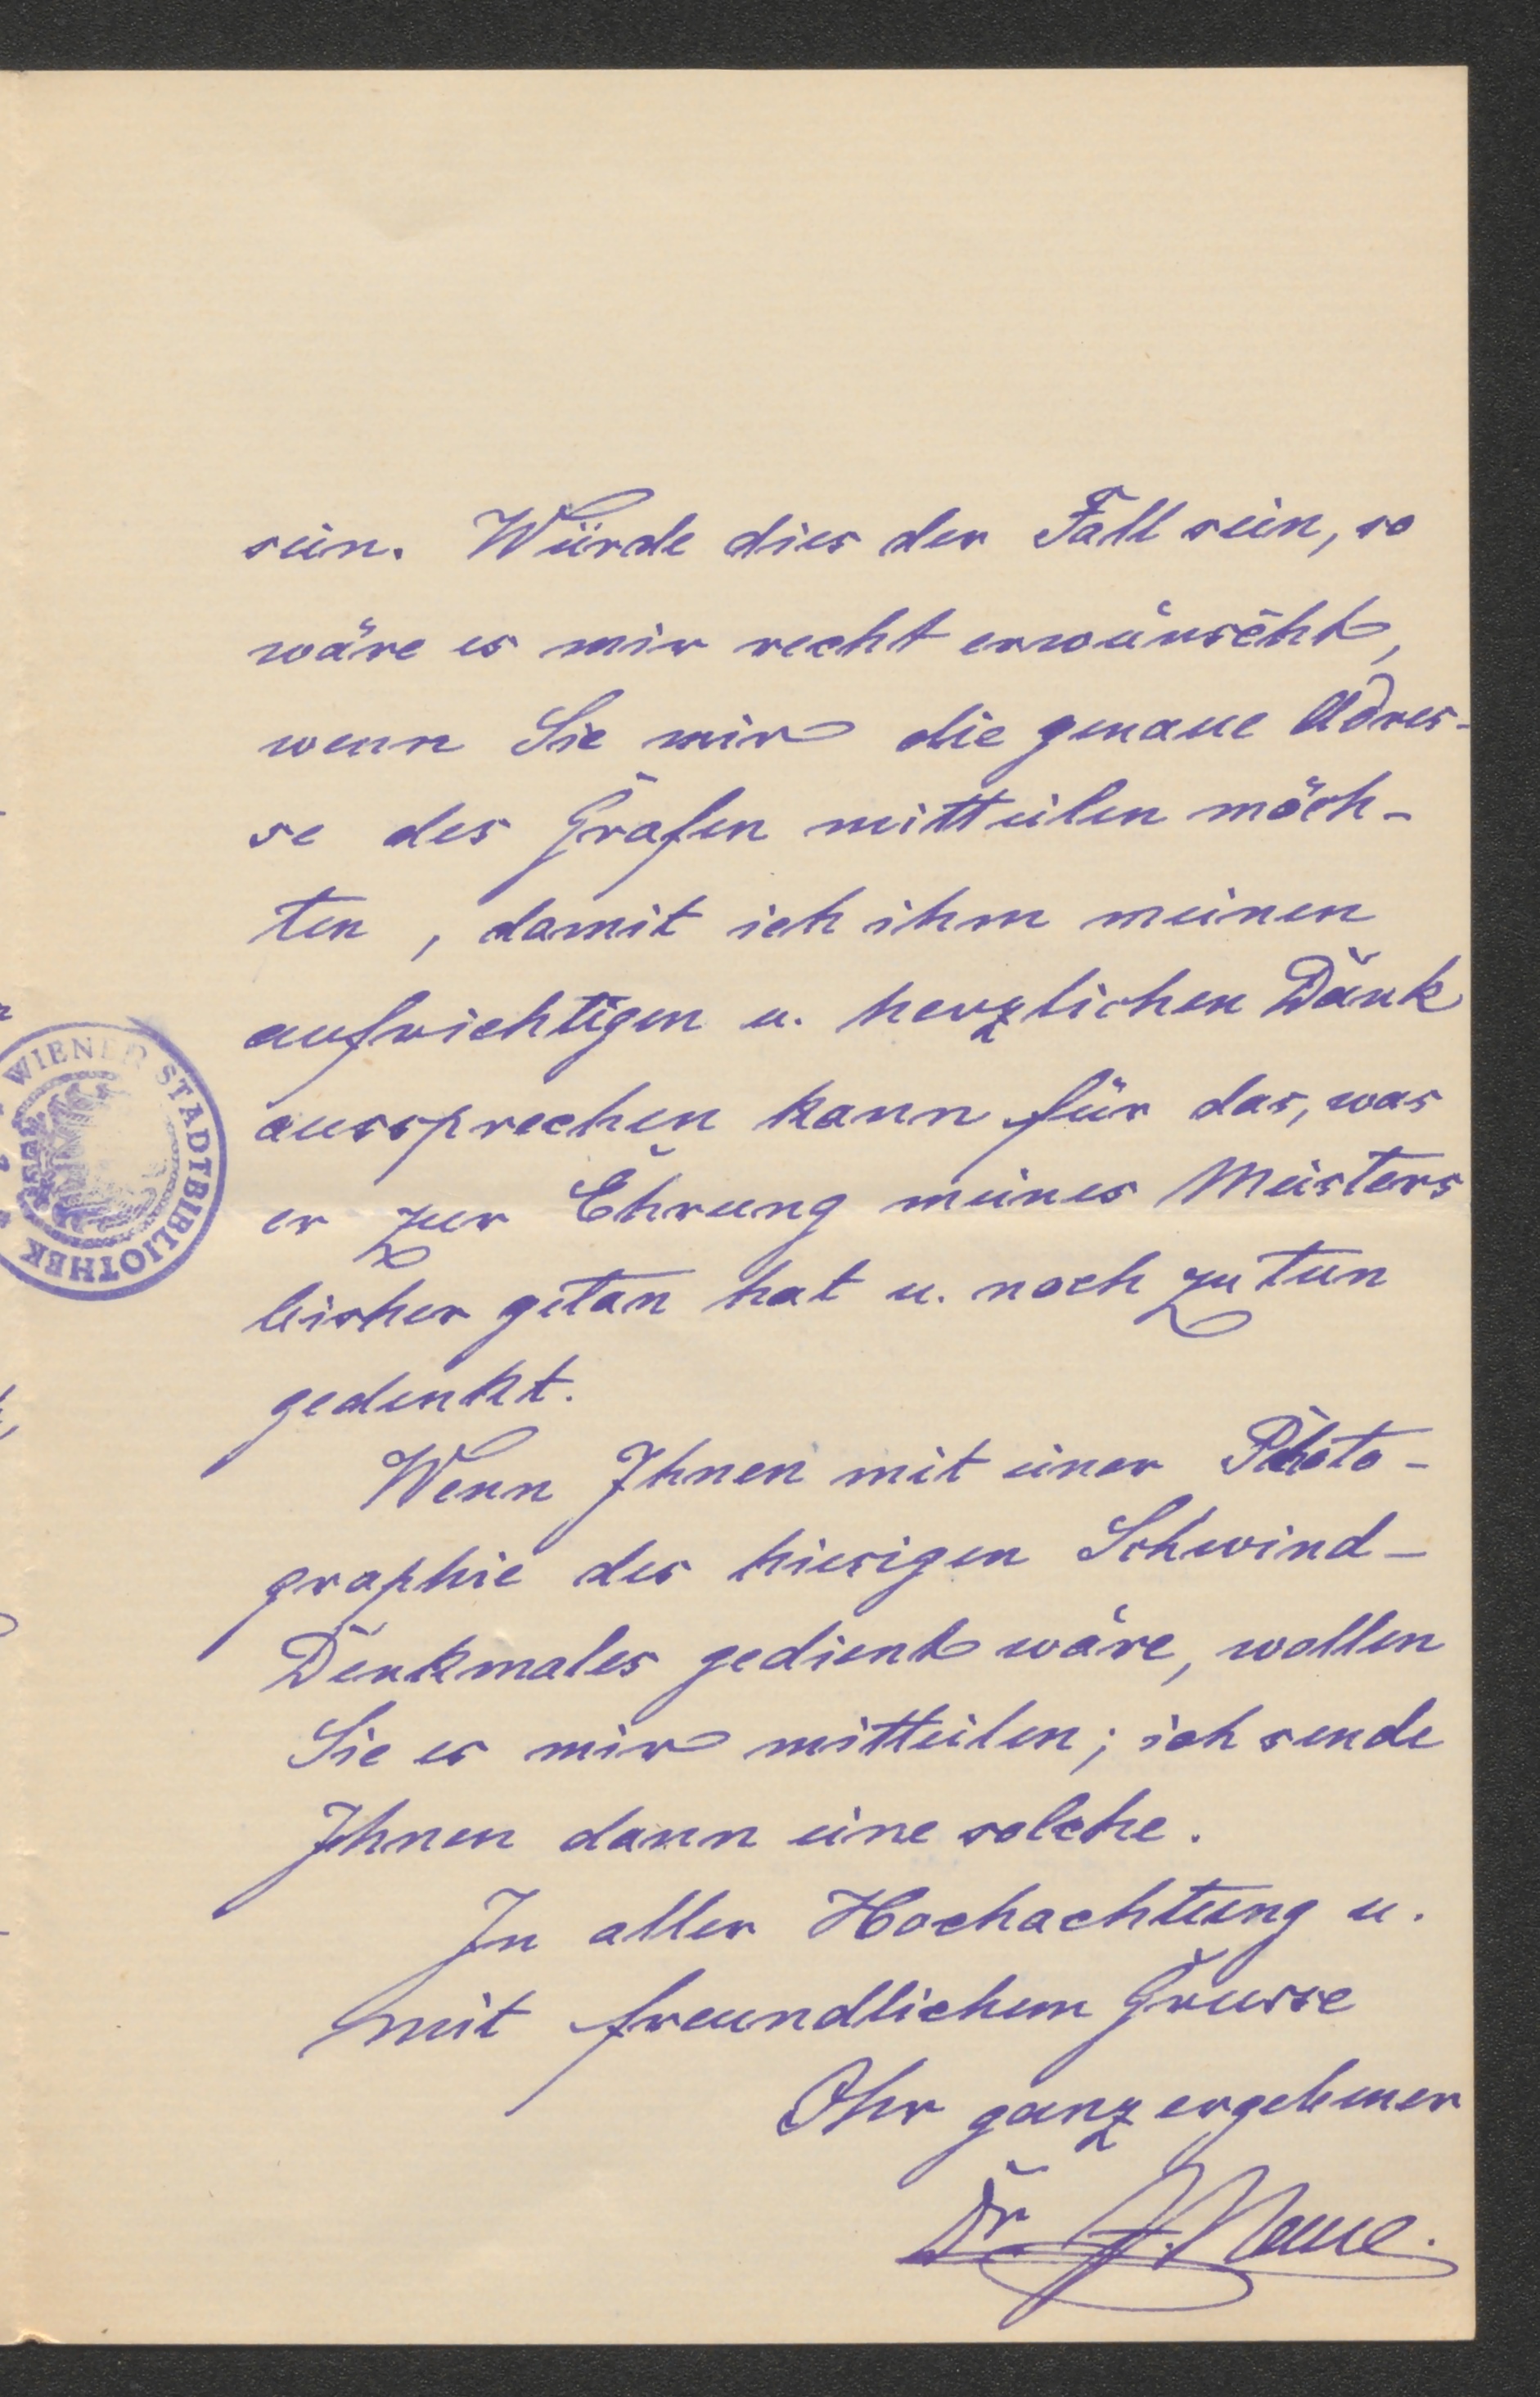 sein. Würde dies der Fall sein, so
wäre es mir recht erwünscht,
wenn Sie mir die genaue Adres-
se des Grafen mitteilen möch-
ten, damit ich ihm meinen
aufrichtigen u. herzlichen Dank
aussprechen kann für das, was
er zur Ehrung meines Meisters
bisher getan hat u. noch zu tun
gedenkt.
Wenn Ihnen mit einer Photo-
graphie des hiesigen Schwind-
Denkmales gedient wäre, wollen
Sie es mir mitteilen; ich sende
Ihnen dann eine solche.
In aller Hochachtung u.
mit freundlichem Grusse
Ihr ganz ergebener
Dr. J. Naue.
WIENER STADTBIBLIOTHEK